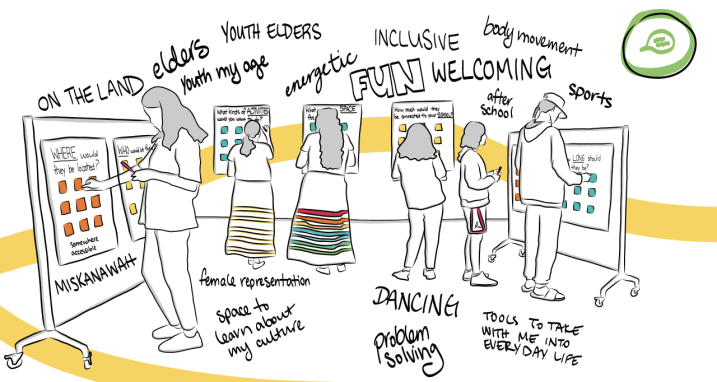 ON THE LAND
elders
YOUTH ELDERS
Youth my age
energetic
INCLUSIVE
FUN WELCOMING
body movement
after
school
sports
WHERE would
they be located?
somewhere
accessible
WHO would be
What kinds of ACTIVITIES
would you
What
SPACE
the
How much would they
be connected to your SCHOOL?
LONG should
they be?
MISKANAWAH
female representation
space to
learn about
my culture
DANCING
problem
solving
TOOLS TO TAKE
WITH ME INTO
EVERYDAY LIFE